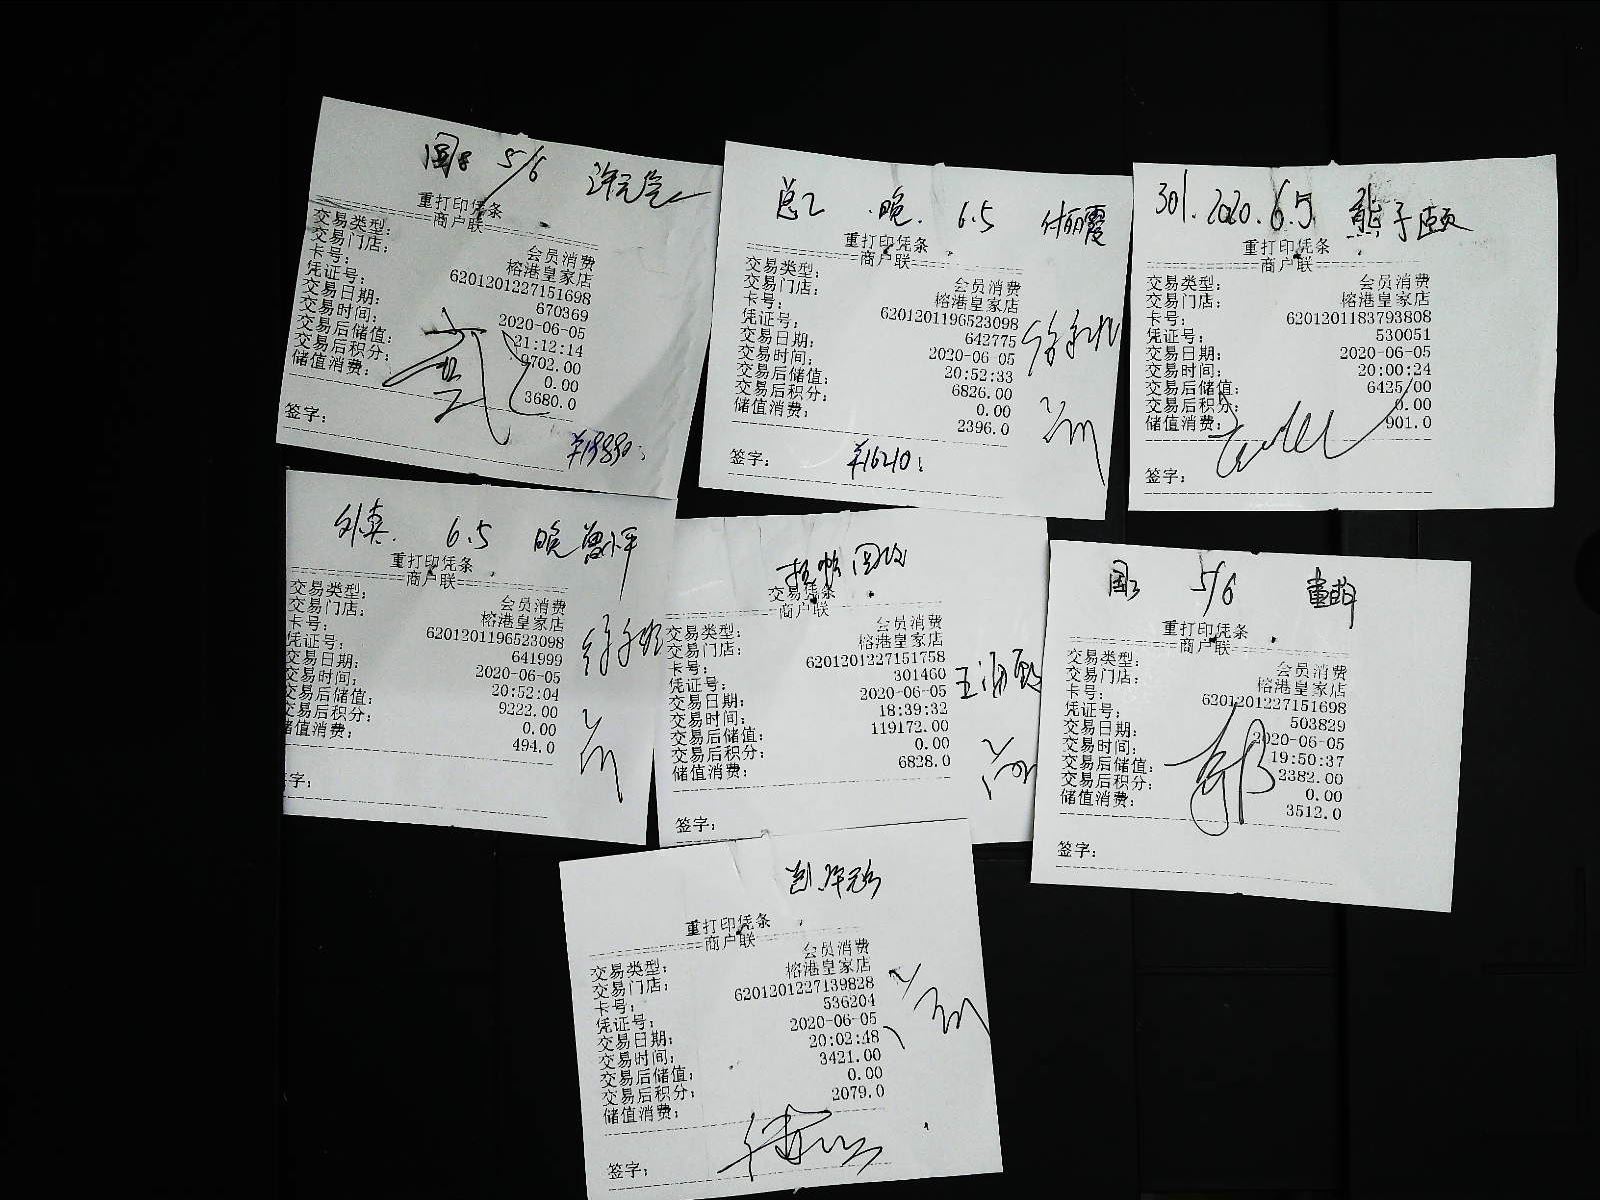 5/6
重打印凭条
商户联
交易类型: 会员消费
交易门店: 榕港皇家店
卡号: 6201201227151698
凭证号: 670369
交易日期: 2020-06-05
交易时间: 21:12:14
交易后储值: 9702.00
交易后积分: 0.00
储值消费: 3680.0
签字:
晚. 6.5 付丽霞
重打印凭条
商户联
交易类型: 会员消费
交易门店: 榕港皇家店
卡号: 6201201196523098
凭证号: 642775
交易日期: 2020-06-05
交易时间: 20:52:33
交易后储值: 6826.00
交易后积分: 0.00
储值消费: 2396.0
签字: ¥16210
301.2020.6.5 熊子颐
重打印凭条
商户联
交易类型: 会员消费
交易门店: 榕港皇家店
卡号: 6201201183793808
凭证号: 530051
交易日期: 2020-06-05
交易时间: 20:00:24
交易后储值: 6425.00
交易后积分: 0.00
储值消费: 901.0
签字:
外卖. 6.5 晚 曾小平
重打印凭条
商户联
交易类型: 会员消费
交易门店: 榕港皇家店
卡号: 6201201196523098
凭证号: 641999
交易日期: 2020-06-05
交易时间: 20:52:04
交易后储值: 9222.00
交易后积分: 0.00
储值消费: 494.0
签字:
交易凭条
商户联
交易类型: 会员消费
交易门店: 榕港皇家店
卡号: 6201201227151758
凭证号: 301460
交易日期: 2020-06-05
交易时间: 18:39:32
交易后储值: 119172.00
交易后积分: 0.00
储值消费: 6828.0
签字:
5/6
重打印凭条
商户联
交易类型: 会员消费
交易门店: 榕港皇家店
卡号: 6201201227151698
凭证号: 503829
交易日期: 2020-06-05
交易时间: 19:50:37
交易后储值: 2382.00
交易后积分: 0.00
储值消费: 3512.0
签字:
重打印凭条
商户联
交易类型: 会员消费
交易门店: 榕港皇家店
卡号: 6201201227139828
凭证号: 536204
交易日期: 2020-06-05
交易时间: 20:02:48
交易后储值: 3421.00
交易后积分: 0.00
储值消费: 2079.0
签字: